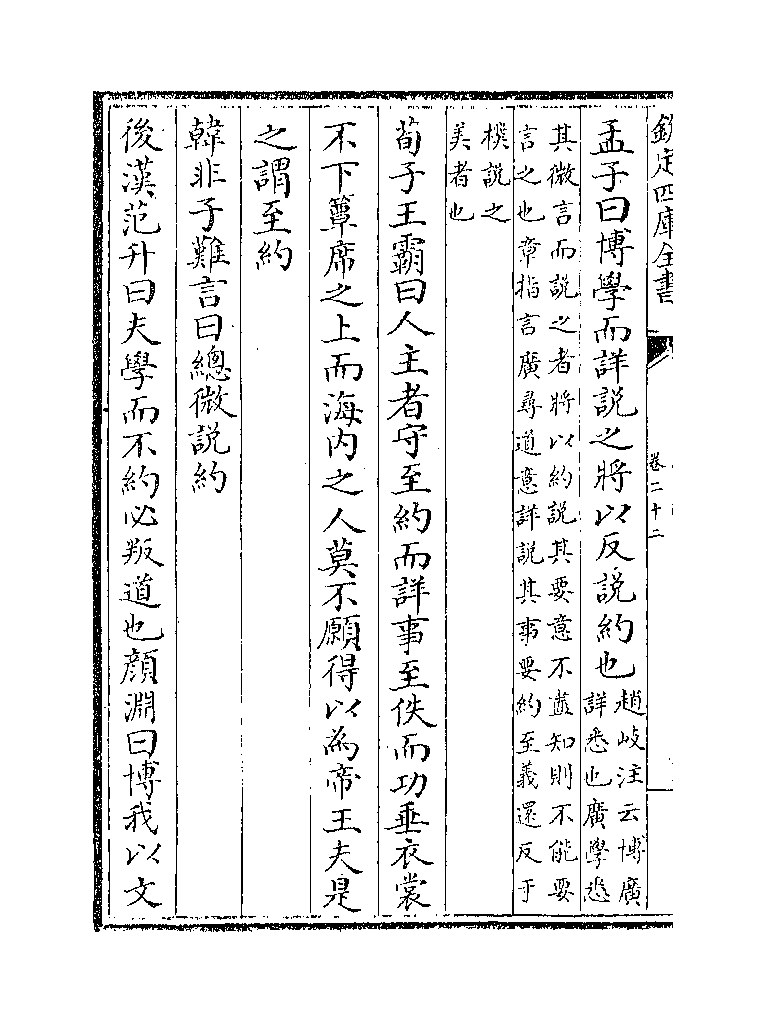 欽定四庫全書
卷二十二
孟子曰博學而詳說之將以反說約也趙岐注云博廣
詳悉也廣學悉
其微言而說之者將以約說其要意不盡知則不能要
言之也章指言廣尋道意詳說其事要約至義還反于
樸說之
美者也
荀子王霸曰人主者守至約而詳事至佚而功垂衣裳
不下簟席之上而海內之人莫不願得以為帝王夫是
之謂至約
韓非子難言曰總微說約
後漢范升曰夫學而不約必叛道也顏淵曰博我以文